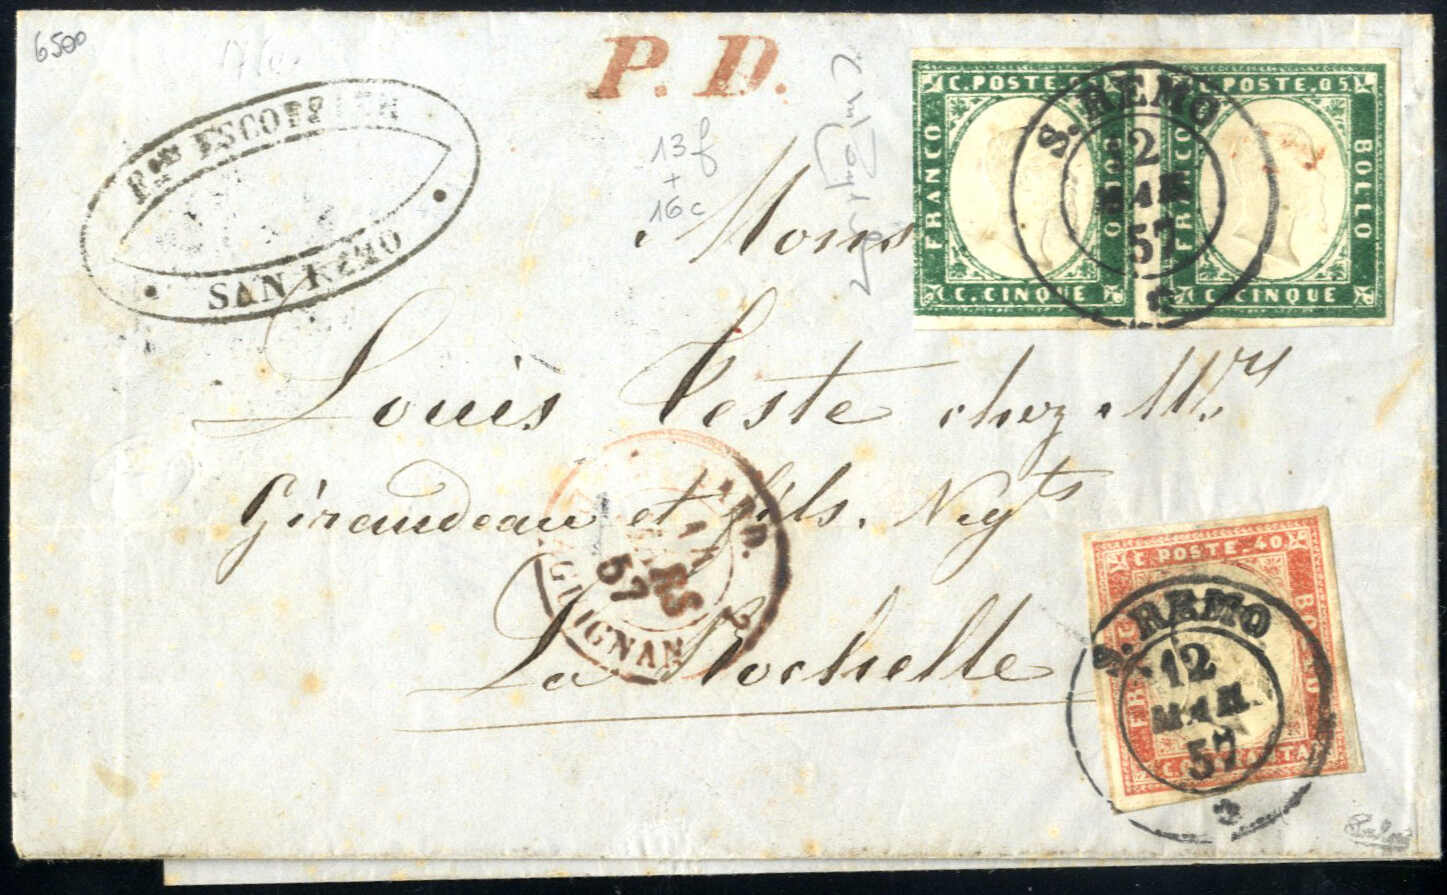 6500
P. D.
ESCOFFIER
SAN REMO
13f
+
16c
C. POSTE. 05
FRANCO
BOLLO
C. CINQUE
C. POSTE. 05
FRANCO
BOLLO
C. CINQUE
S. REMO
12
MAR
57
Mons
Louis Teste chez Mrs
Giraudeau et fils. Negts
La Rochelle
MARS
57
2
C. POSTE. 40
BOLLO
S. REMO
12
MAR
57